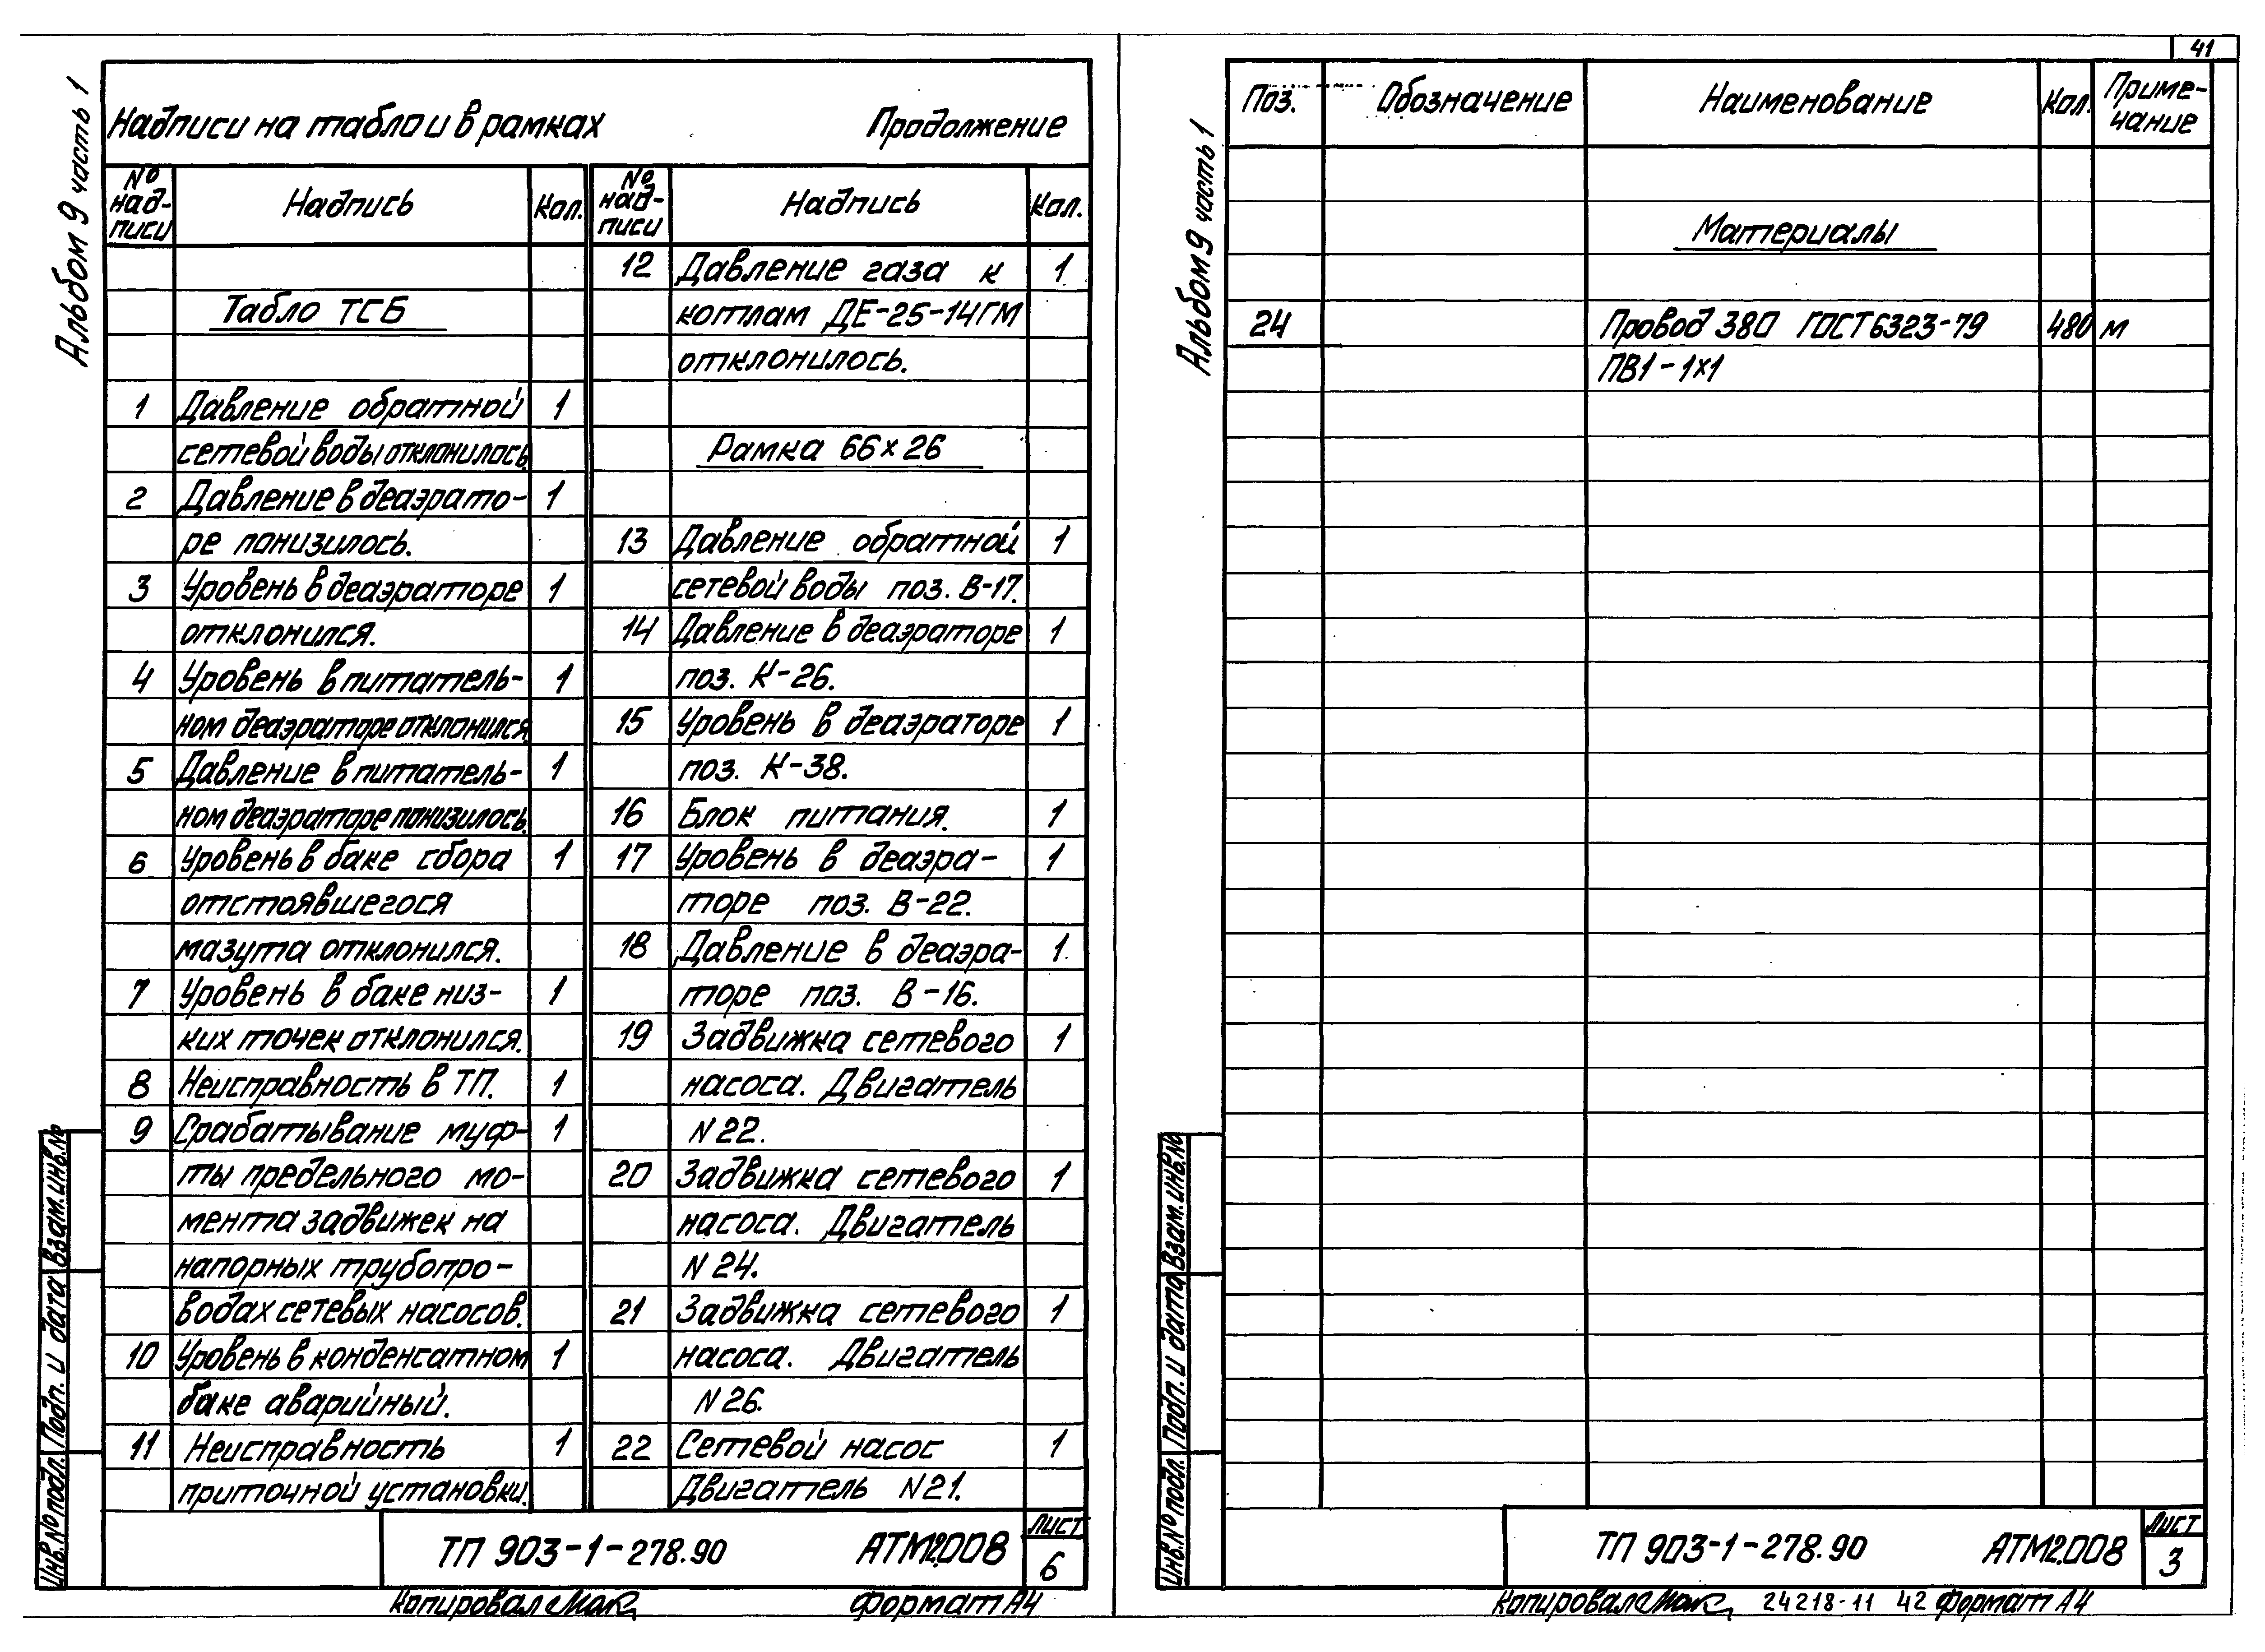 41
Альбом 9 часть 1
Надписи на табло и в рамках Продолжение
№ надписи Надпись Кол. № надписи Надпись Кол.
Табло ТСБ
1 Давление обратной 1
сетевой воды отклонилось.
2 Давление в деаэрато- 1
ре понизилось.
3 Уровень в деаэраторе 1
отклонился.
4 Уровень в питатель- 1
ном деаэраторе отклонился.
5 Давление в питатель- 1
ном деаэраторе понизилось.
6 Уровень в баке сбора 1
отстоявшегося
мазута отклонился.
7 Уровень в баке низ- 1
ких точек отклонился.
8 Неисправность в ТП. 1
9 Срабатывание муф- 1
ты предельного мо-
мента задвижек на
напорных трубопро-
водах сетевых насосов.
10 Уровень в конденсатном 1
баке аварийный.
11 Неисправность 1
приточной установки.
12 Давление газа к 1
котлам ДЕ-25-14ГМ
отклонилось.
Рамка 66×26
13 Давление обратной 1
сетевой воды поз. В-17.
14 Давление в деаэраторе 1
поз. К-26.
15 Уровень в деаэраторе 1
поз. К-38.
16 Блок питания. 1
17 Уровень в деаэра- 1
торе поз. В-22.
18 Давление в деаэра- 1
торе поз. В-16.
19 Задвижка сетевого 1
насоса. Двигатель
N22.
20 Задвижка сетевого 1
насоса. Двигатель
N24.
21 Задвижка сетевого 1
насоса. Двигатель
N26.
22 Сетевой насос 1
Двигатель N21.
Взам.инв.№
Подп. и дата
Инв.№ подл.
ТП 903-1-278.90 АТМ2.008
Лист
6
Копировал Формат А4
Альбом 9 часть 1
Поз. Обозначение Наименование Кол. Приме-
чание
Материалы
24 Провод 380 ГОСТ 6323-79 480 м
ПВ1-1×1
Взам.инв.№
Подп. и дата
Инв.№ подл.
ТП 903-1-278.90 АТМ2.008
Лист
3
Копировал 24218-11 42 Формат А4